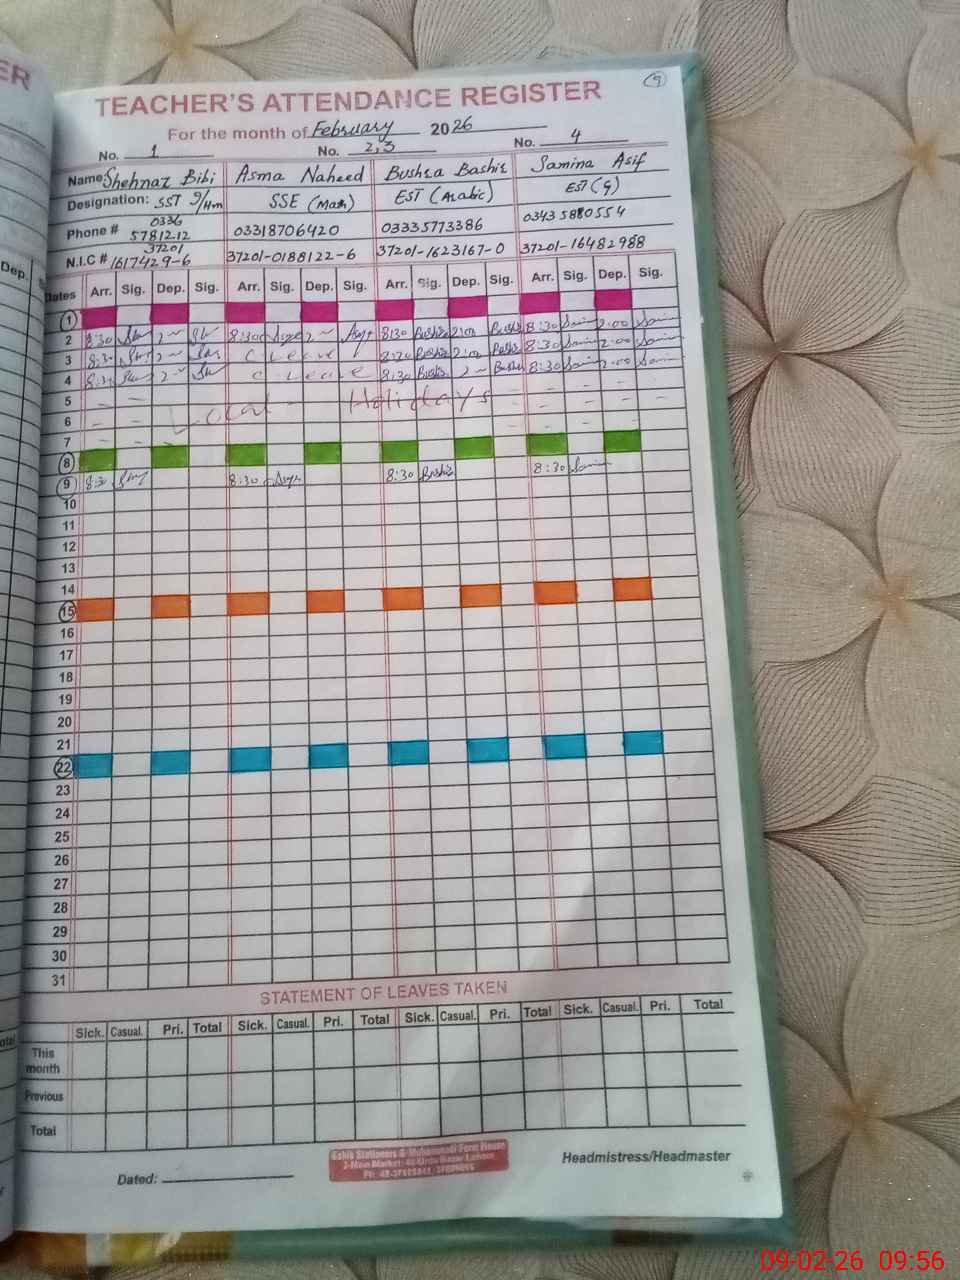 ER
9
TEACHER'S ATTENDANCE REGISTER
For the month of February 2026
No. 1 No. 2,3 No. 4
Name: Shehnaz Bibi Asma Naheed Bushra Bashir Samina Asif
Designation: SST I/Hm SSE (Math) EST (Arabic) EST (G)
Phone # 0336 5781212 03318706420 03335773386 03435880554
N.I.C # 37201 1617429-6 37201-0188122-6 37201-1623167-0 37201-16482988
Dep.
Dates Arr. Sig. Dep. Sig. Arr. Sig. Dep. Sig. Arr. Sig. Dep. Sig. Arr. Sig. Dep. Sig.
1
2 8:30 8:30 8:30 Bushra 8:30 2:00
3 8:30 C Leave 8:30 Bushra 8:30 2:00
4 8:30 C Leave 8:30 Bushra 8:30 2:00
5 Local Holidays
6
7
8
9 8:30 8:30 8:30 Bushra 8:30
10
11
12
13
14
15
16
17
18
19
20
21
22
23
24
25
26
27
28
29
30
31
STATEMENT OF LEAVES TAKEN
Sick. Casual. Pri. Total Sick. Casual. Pri. Total Sick. Casual. Pri. Total Sick. Casual. Pri. Total
This month
Previous
Total
Dated:
Headmistress/Headmaster
09-02-26 09:56